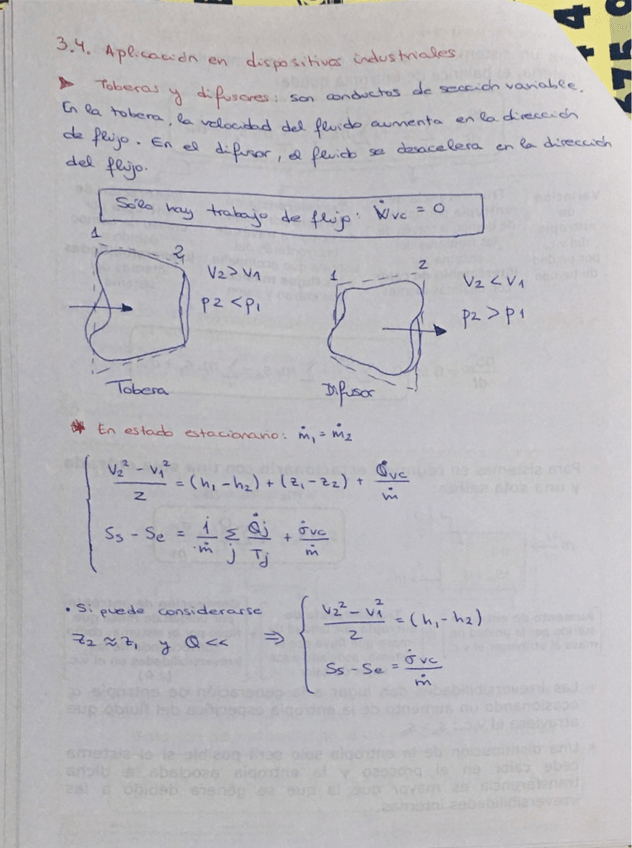 3.4. Aplicación en dispositivos industriales.
➤ Toberas y difusores: son conductos de sección variable.
En la tobera, la velocidad del fluido aumenta en la dirección
de flujo. En el difusor, el fluido se desacelera en la dirección
del flujo.
Sólo hay trabajo de flujo: Ẇvc = 0
1 2
V2 > V1
p2 < p1
Tobera
1 2
V2 < V1
p2 > p1
Difusor
* En estado estacionario: ṁ1 = ṁ2
(V2² - V1²)/2 = (h1 - h2) + (z1 - z2) + Q̇vc/ṁ
Ss - Se = 1/ṁ Σj Q̇j/Tj + σ̇vc/ṁ
• Si puede considerarse
z2 ≈ z1 y Q <<
⇒
(V2² - V1²)/2 = (h1 - h2)
Ss - Se = σ̇vc/ṁ
675